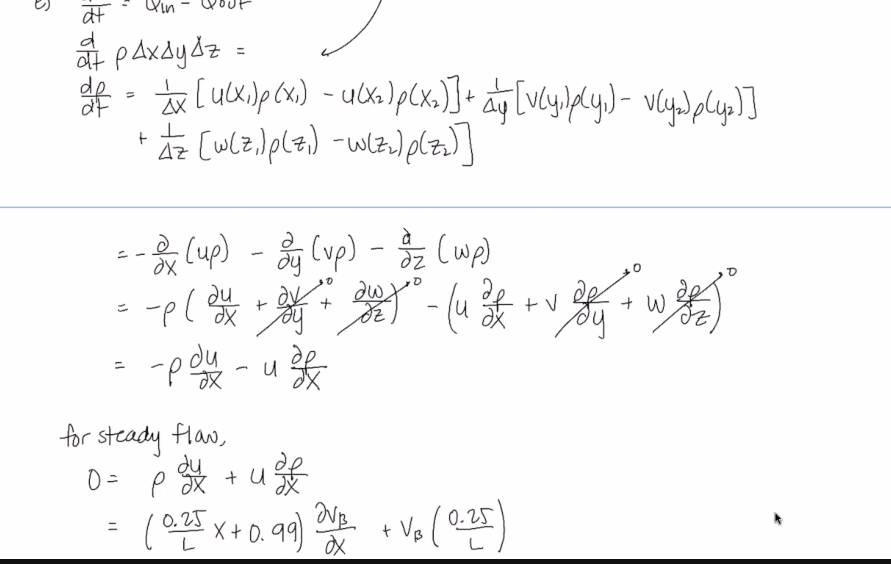 c) d/dt = Qin - Qout
d/dt ρΔxΔyΔz =
dρ/dt = 1/Δx [u(x₁)ρ(x₁) - u(x₂)ρ(x₂)] + 1/Δy [v(y₁)ρ(y₁) - v(y₂)ρ(y₂)]
+ 1/Δz [w(z₁)ρ(z₁) - w(z₂)ρ(z₂)]
= -∂/∂x (uρ) - ∂/∂y (vρ) - ∂/∂z (wρ)
= -ρ(∂u/∂x + ∂v/∂y→0 + ∂w/∂z→0) - (u ∂ρ/∂x + v ∂ρ/∂y→0 + w ∂ρ/∂z→0)
= -ρ du/∂x - u ∂ρ/∂x
for steady flow,
0 = ρ du/∂x + u ∂ρ/∂x
= (0.25/L x + 0.99) ∂V_B/∂x + V_B (0.25/L)